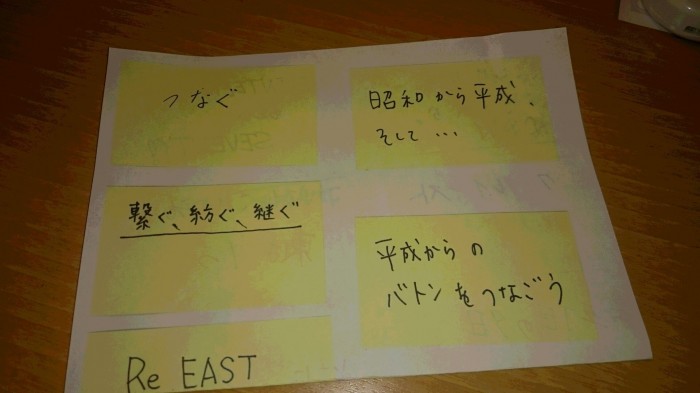 つなぐ
昭和から平成、
そして…
繋ぐ、紡ぐ、継ぐ
平成からの
バトンをつなごう
Re EAST